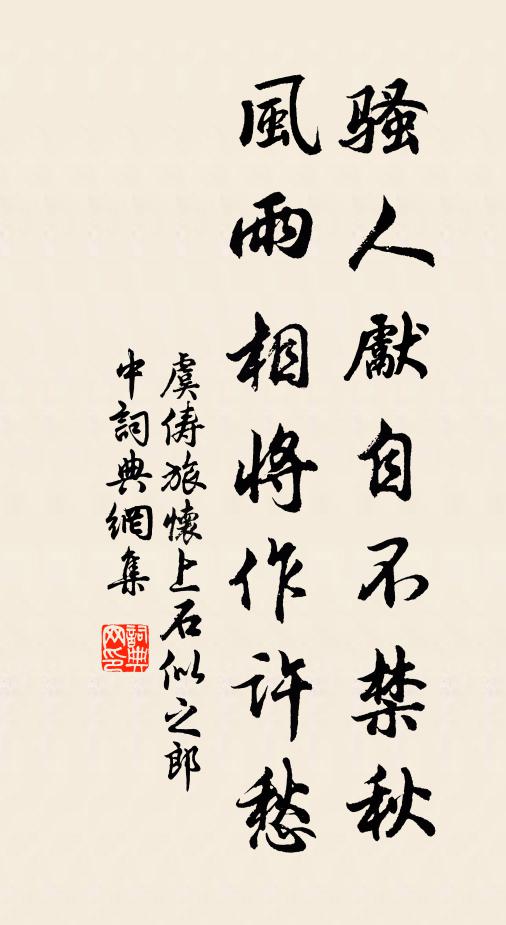 騷人獻自不禁秋
風雨相將作許愁
虞儔旅懷上石似之郎
中詞典網集
詞典網印